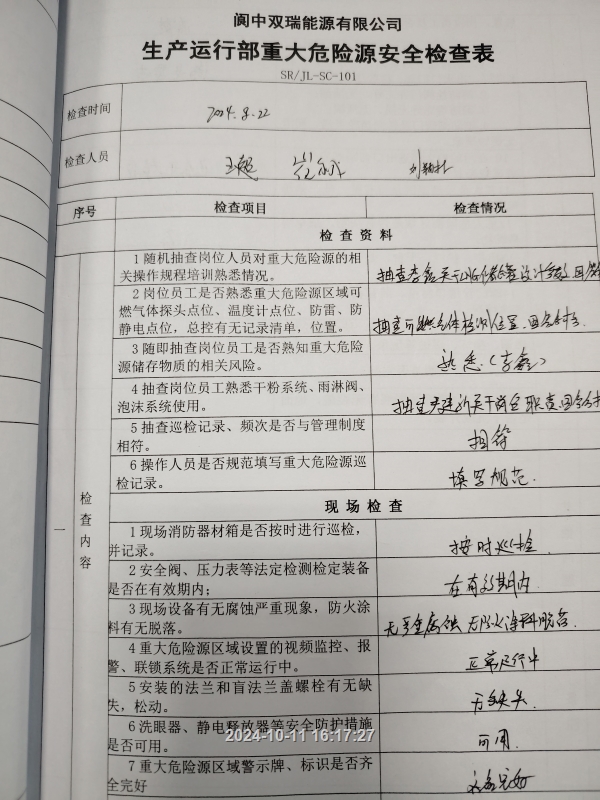 阆中双瑞能源有限公司
生产运行部重大危险源安全检查表
SR/JL-SC-101
检查时间 2024.8.22
检查人员
序号 检查项目 检查情况
检查资料
1 随机抽查岗位人员对重大危险源的相
关操作规程培训熟悉情况。
2 岗位员工是否熟悉重大危险源区域可
燃气体探头点位、温度计点位、防雷、防
静电点位，总控有无记录清单，位置。
3 随即抽查岗位员工是否熟知重大危险
源储存物质的相关风险。
熟悉（李鑫）
4 抽查岗位员工熟悉干粉系统、雨淋阀、
泡沫系统使用。
5 抽查巡检记录、频次是否与管理制度
相符。
相符
6 操作人员是否规范填写重大危险源巡
检记录。
填写规范.
一
检查内容
现场检查
1 现场消防器材箱是否按时进行巡检，
并记录。
按时巡检.
2 安全阀、压力表等法定检测检定装备
是否在有效期内；
在有效期内.
3 现场设备有无腐蚀严重现象，防火涂
料有无脱落。
无严重腐蚀 无防火涂料脱落.
4 重大危险源区域设置的视频监控、报
警、联锁系统是否正常运行中。
正常运行中
5 安装的法兰和盲法兰盖螺栓有无缺
失，松动。
无缺失.
6 洗眼器、静电释放器等安全防护措施
是否可用。
可用.
7 重大危险源区域警示牌、标识是否齐
全完好
2024-10-11 16:17:27